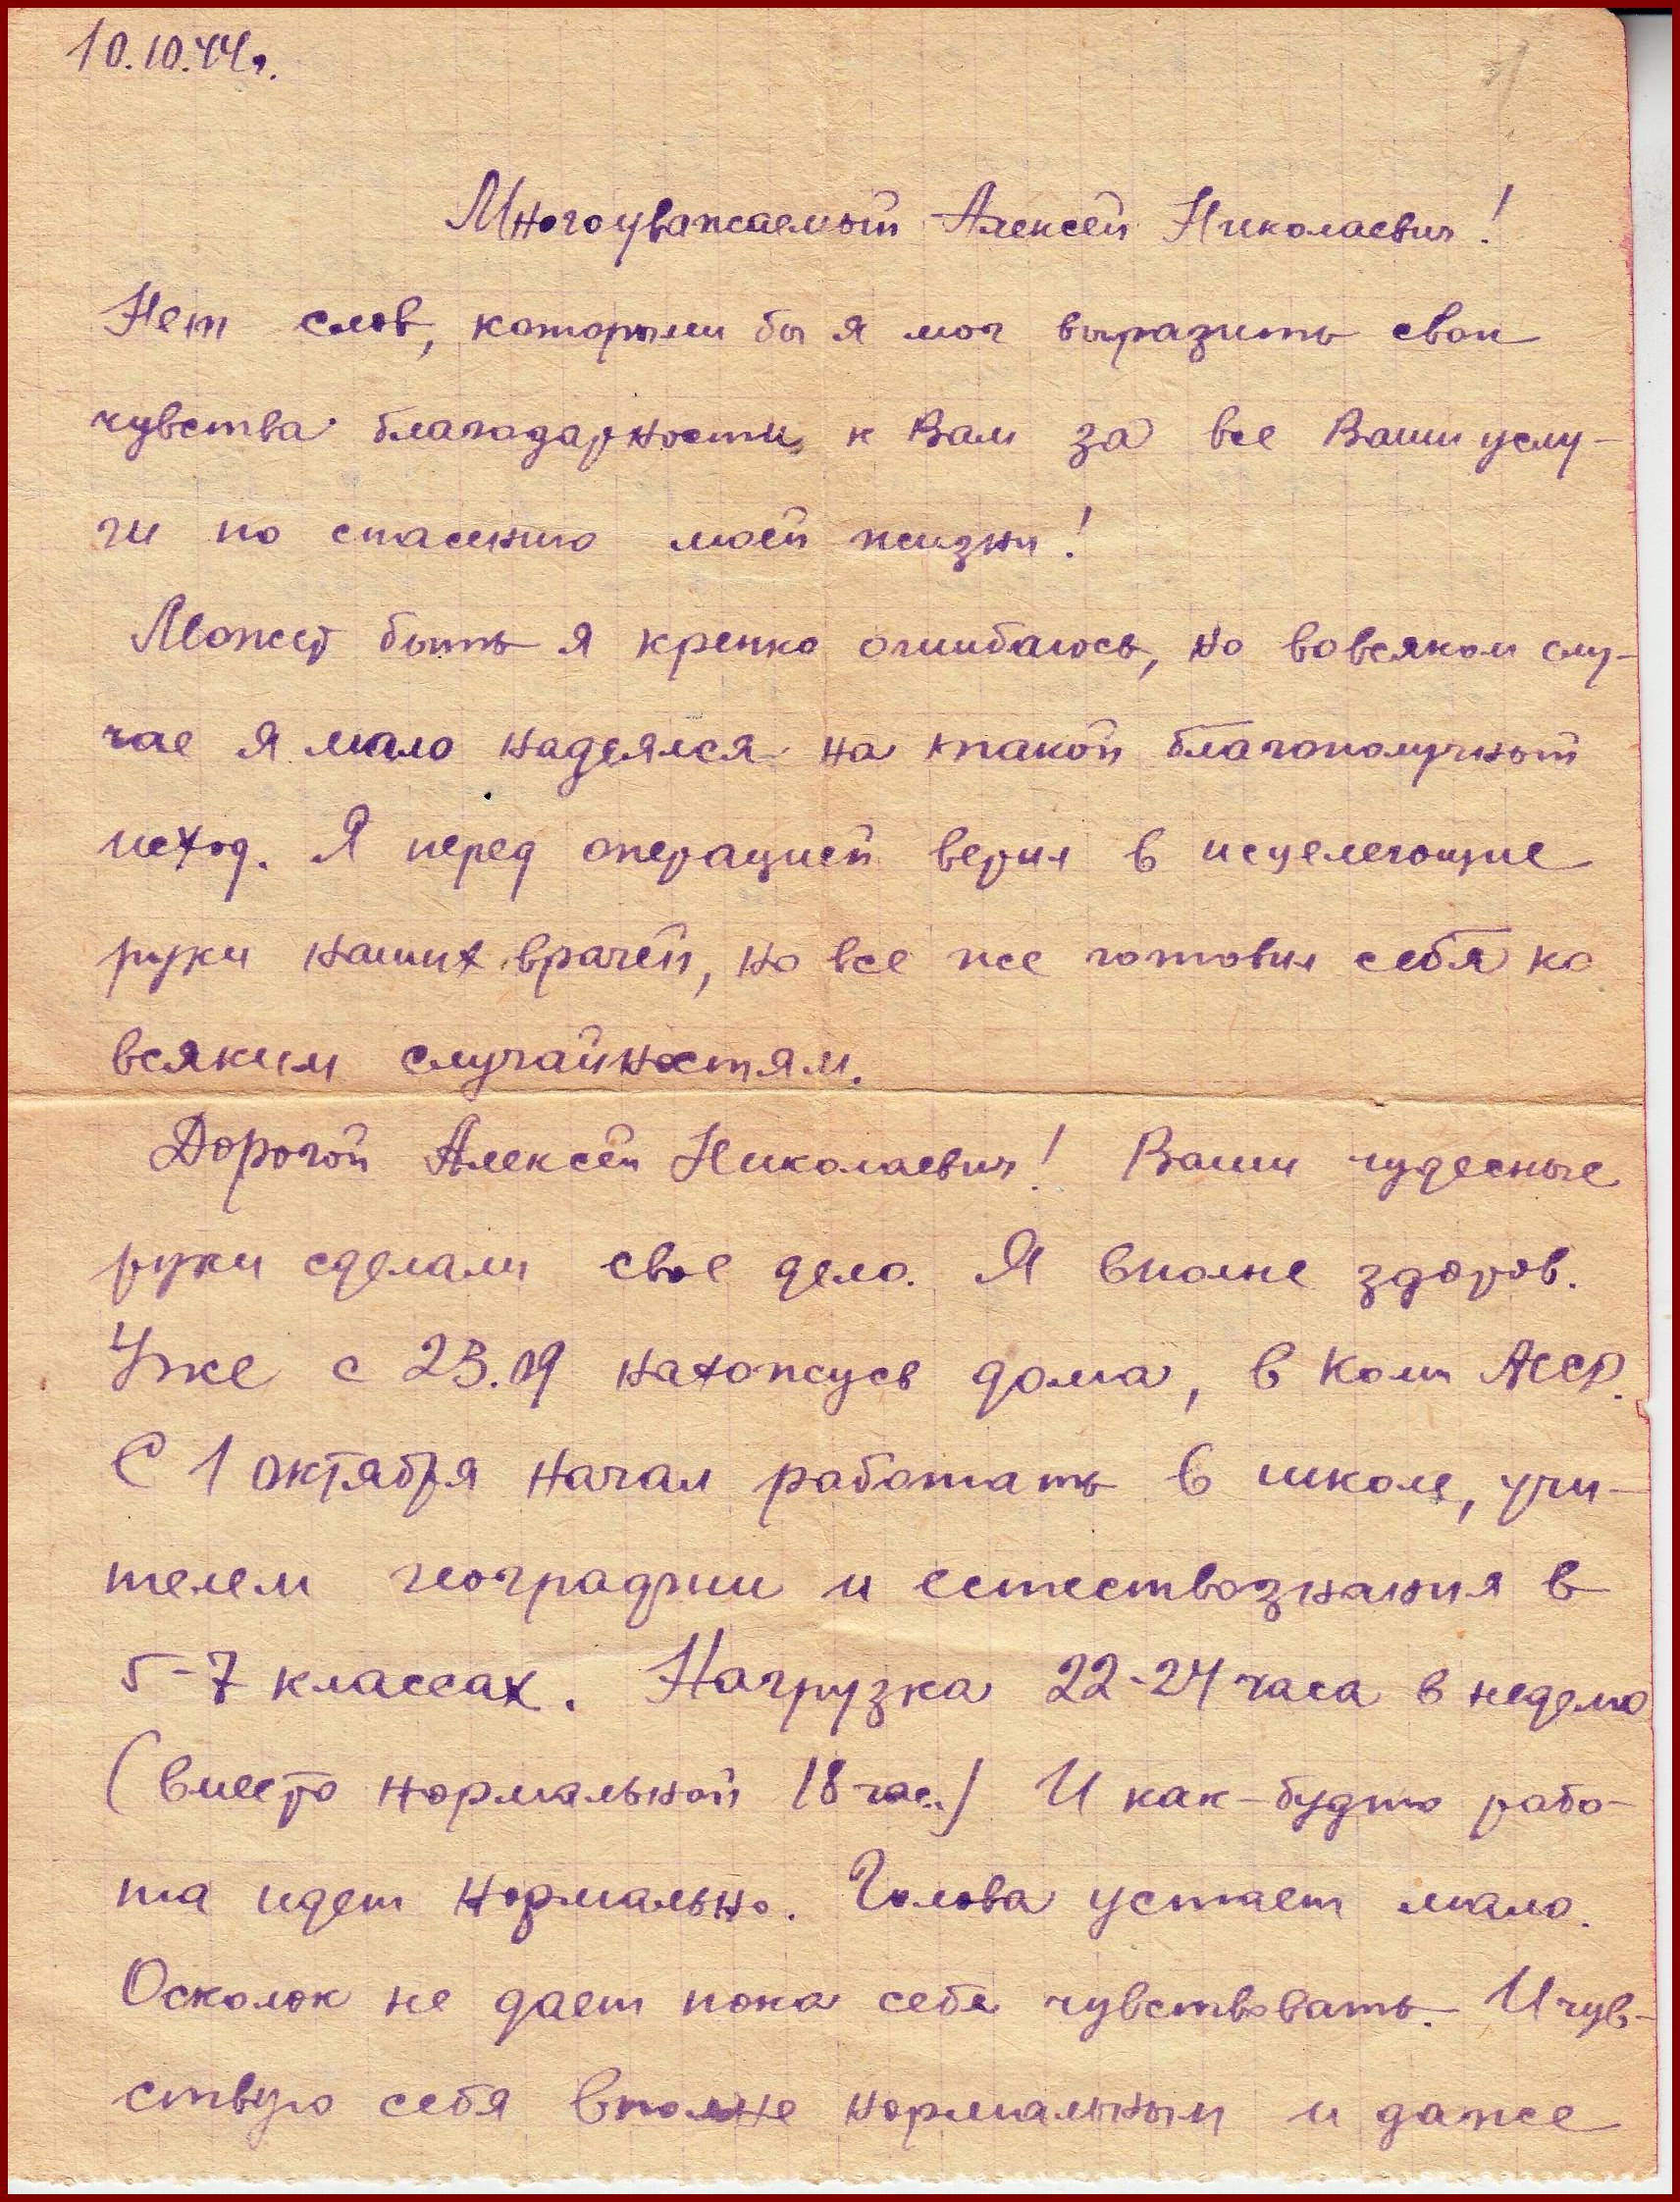 10.10.44г.
Многоуважаемый Алексей Николаевич!
Нет слов, которыми бы я мог выразить свои
чувства благодарности к Вам за все Ваши услу-
ги по спасению моей жизни!
Может быть я крепко ошибаюсь, но вовсяком слу-
чае я мало надеялся на такой благополучный
исход. Я перед операцией верил в исцеляющие
руки наших врачей, но все же готовил себя ко
всяким случайностям.
Дорогой Алексей Николаевич! Ваши чудесные
руки сделали свое дело. Я вполне здоров.
Уже с 23.09 нахожусь дома, в Коми АССР.
С 1 октября начал работать в школе, учи-
телем географии и естествознания в
5-7 классах. Нагрузка 22-24 часа в неделю
(вместо нормальной 18 час.) И как-будто рабо-
та идет нормально. Голова устает мало.
Осколок не дает пока себя чувствовать. И чув-
ствую себя вполне нормальным и даже